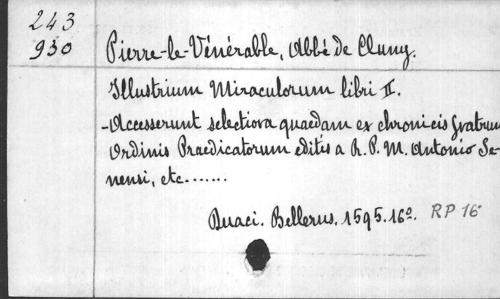 243
930
Pierre-le-Vénérable, Abbé de Cluny.
Illustrium Miraculorum libri II.
-Accesserunt selectiora quaedam ex chronicis fratrum
Ordinis Praedicatorum editis a R. P. M. Antonio Se-
nensi, etc.......
Duaci. Bellerus. 1595. 16º. RP 16º